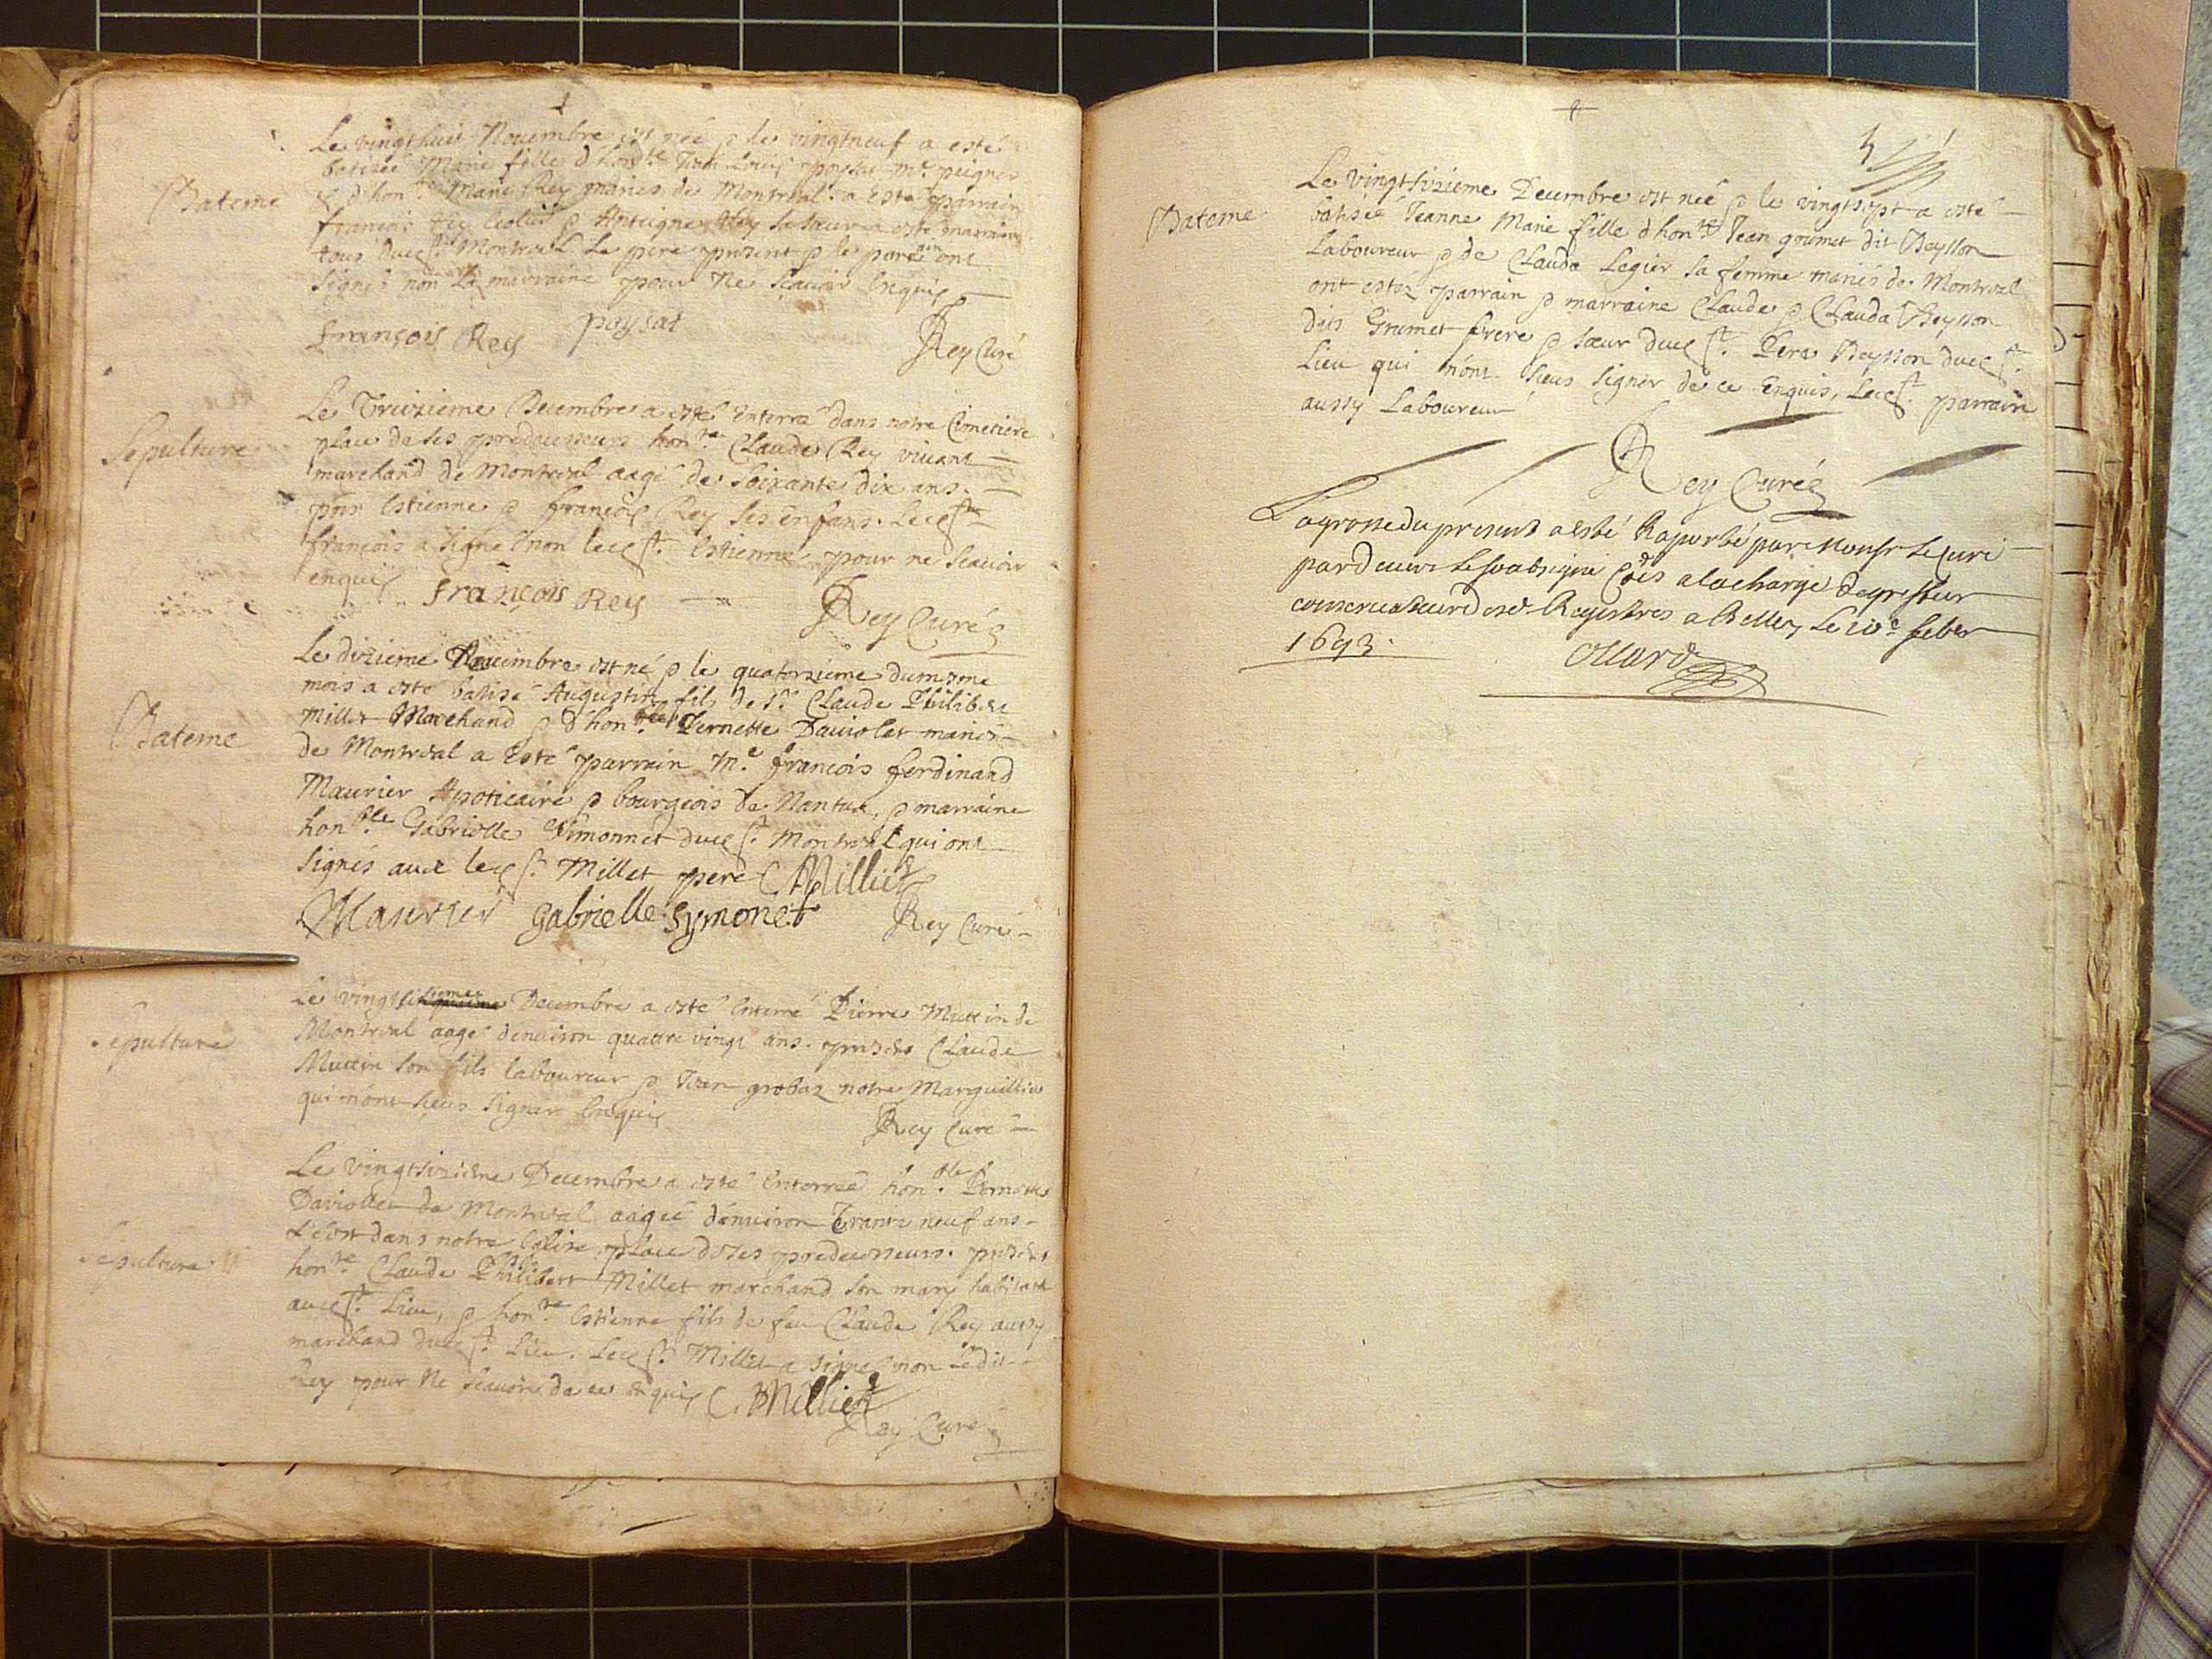 Le vingthuit Novembre est née & le vingtneuf a esté
batisée Marie fille d'hon.ble Jean Louis poysat m.e peigneur
Bateme
& d'hon.ble Marie Rey mariés de Montreal. a esté parrain
françois Rey & Anteigne Rey sa sœur a esté marraine
tous dud. Montreal Le pere present & les parrain ont
signés non la marraine pour ne scavoir enquis
françois Rey poysat
Rey Curé
Le Treizieme Decembre a esté Enterré dans notre Cimetiere
Sepulture
place de ses predecesseurs hon.re Claude Rey vivant
marchand de Montreal aagé de Soixante dix ans.
pnts Estienne & françois Rey ses Enfans. Lecest.
françois a signé non lecest. Estienne pour ne scavoir
enquis françois Rey
Rey Curé
Le dizieme Decembre est né & le quatorzieme dumesme
mois a esté batisé Augustin fils de s.r Claude Philibert
Millet Marchand & d'hon.ble Pernette Daviolet mariés
Bateme
de Montreal a Esté parrain M.e francois ferdinand
Maurier Apoticaire & bourgeois de Nantua, & marraine
hon.ble Gabrielle Simonnet ducest. Montreal qui ont
signés avec lecest. Millet pere C Milliet
Maurier Gabrielle Symonet
Rey Curé
Le vingt Decembre a esté Enterré Pierre Muttin de
Sepulture
Montreal aagé denviron quattre vingt ans. presents Claude
Muttin son fils laboureur & Jean grobas notre Marguillier
qui n'ont sceus signer Enquis
Rey Curé
Le vingtsixiesme Decembre a esté Enterrée hon.ble Pernette
Daviollet de Montreal aagée d'environ Trante neuf ans
Sepulture
& c'est dans notre Eglise, place de ses predecesseurs. presents
hon.re Claude Philibert Millet marchand son mary habitant
aucest. Lieu, & hon.re Estienne fils de feu Claude Rey aussy
marchand ducest. Lieu. Lecest. Millet a signé non ledit
Rey pour ne scavoir de ce enquis C. Milliet
Rey Curé
Le vingtsixieme Decembre est née & le vingtsept a esté
Bateme
batisée Jeanne Marie fille d'hon.re Jean goumet dit Beysson
Laboureur & de Clauda Legier sa femme mariés de Montreal
ont estez parrain & marraine Claude & Clauda Beysson
dits Grumet frere & sœur ducest. Pere Beysson ducest.
Lieu qui n'ont sceus signer de ce Enquis, Lecest. parrain
aussy Laboureur
Rey Curé
La grosse du present a esté Raporté par Monsr Le Curé
pardevers Le soubsigné Cõis a la charge de greffier
conservateur desd. Registres a Belley Le feber
1693.